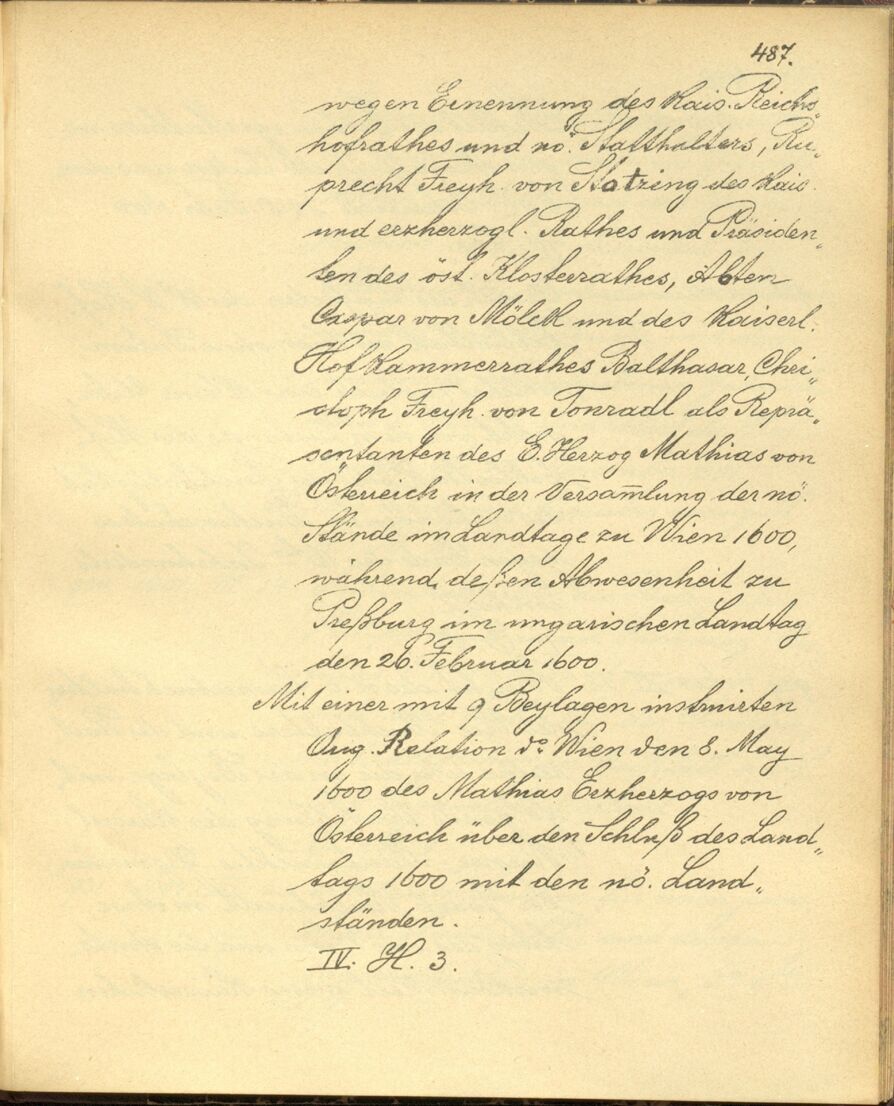 487.
wegen Ernennung des Kais. Reichs„
hofrathes und nö. Statthalters, Ru„
precht Freyh. von Stotzing des Kais.
und erzherzogl. Rathes und Präsiden„
ten des öst. Klosterrathes, Abten
Caspar von Mölck und des Kaiserl.
Hofkammerrathes Balthasar, Chri„
stoph Freyh. von Tonradl als Reprä„
sentanten des E. Herzog Mathias von
Österreich in der Versam̄lung der nö.
Stände im Landtage zu Wien 1600,
während deßen Abwesenheit zu
Preßburg im ungarischen Landtag
den 26. Februar 1600.
Mit einer mit 9 Beylagen instruirten
Orig. Relation do. Wien den 8. May
1600 des Mathias Erzherzogs von
Österreich über den Schluß des Land„
tags 1600 mit den nö. Land„
ständen.
IV. H. 3.